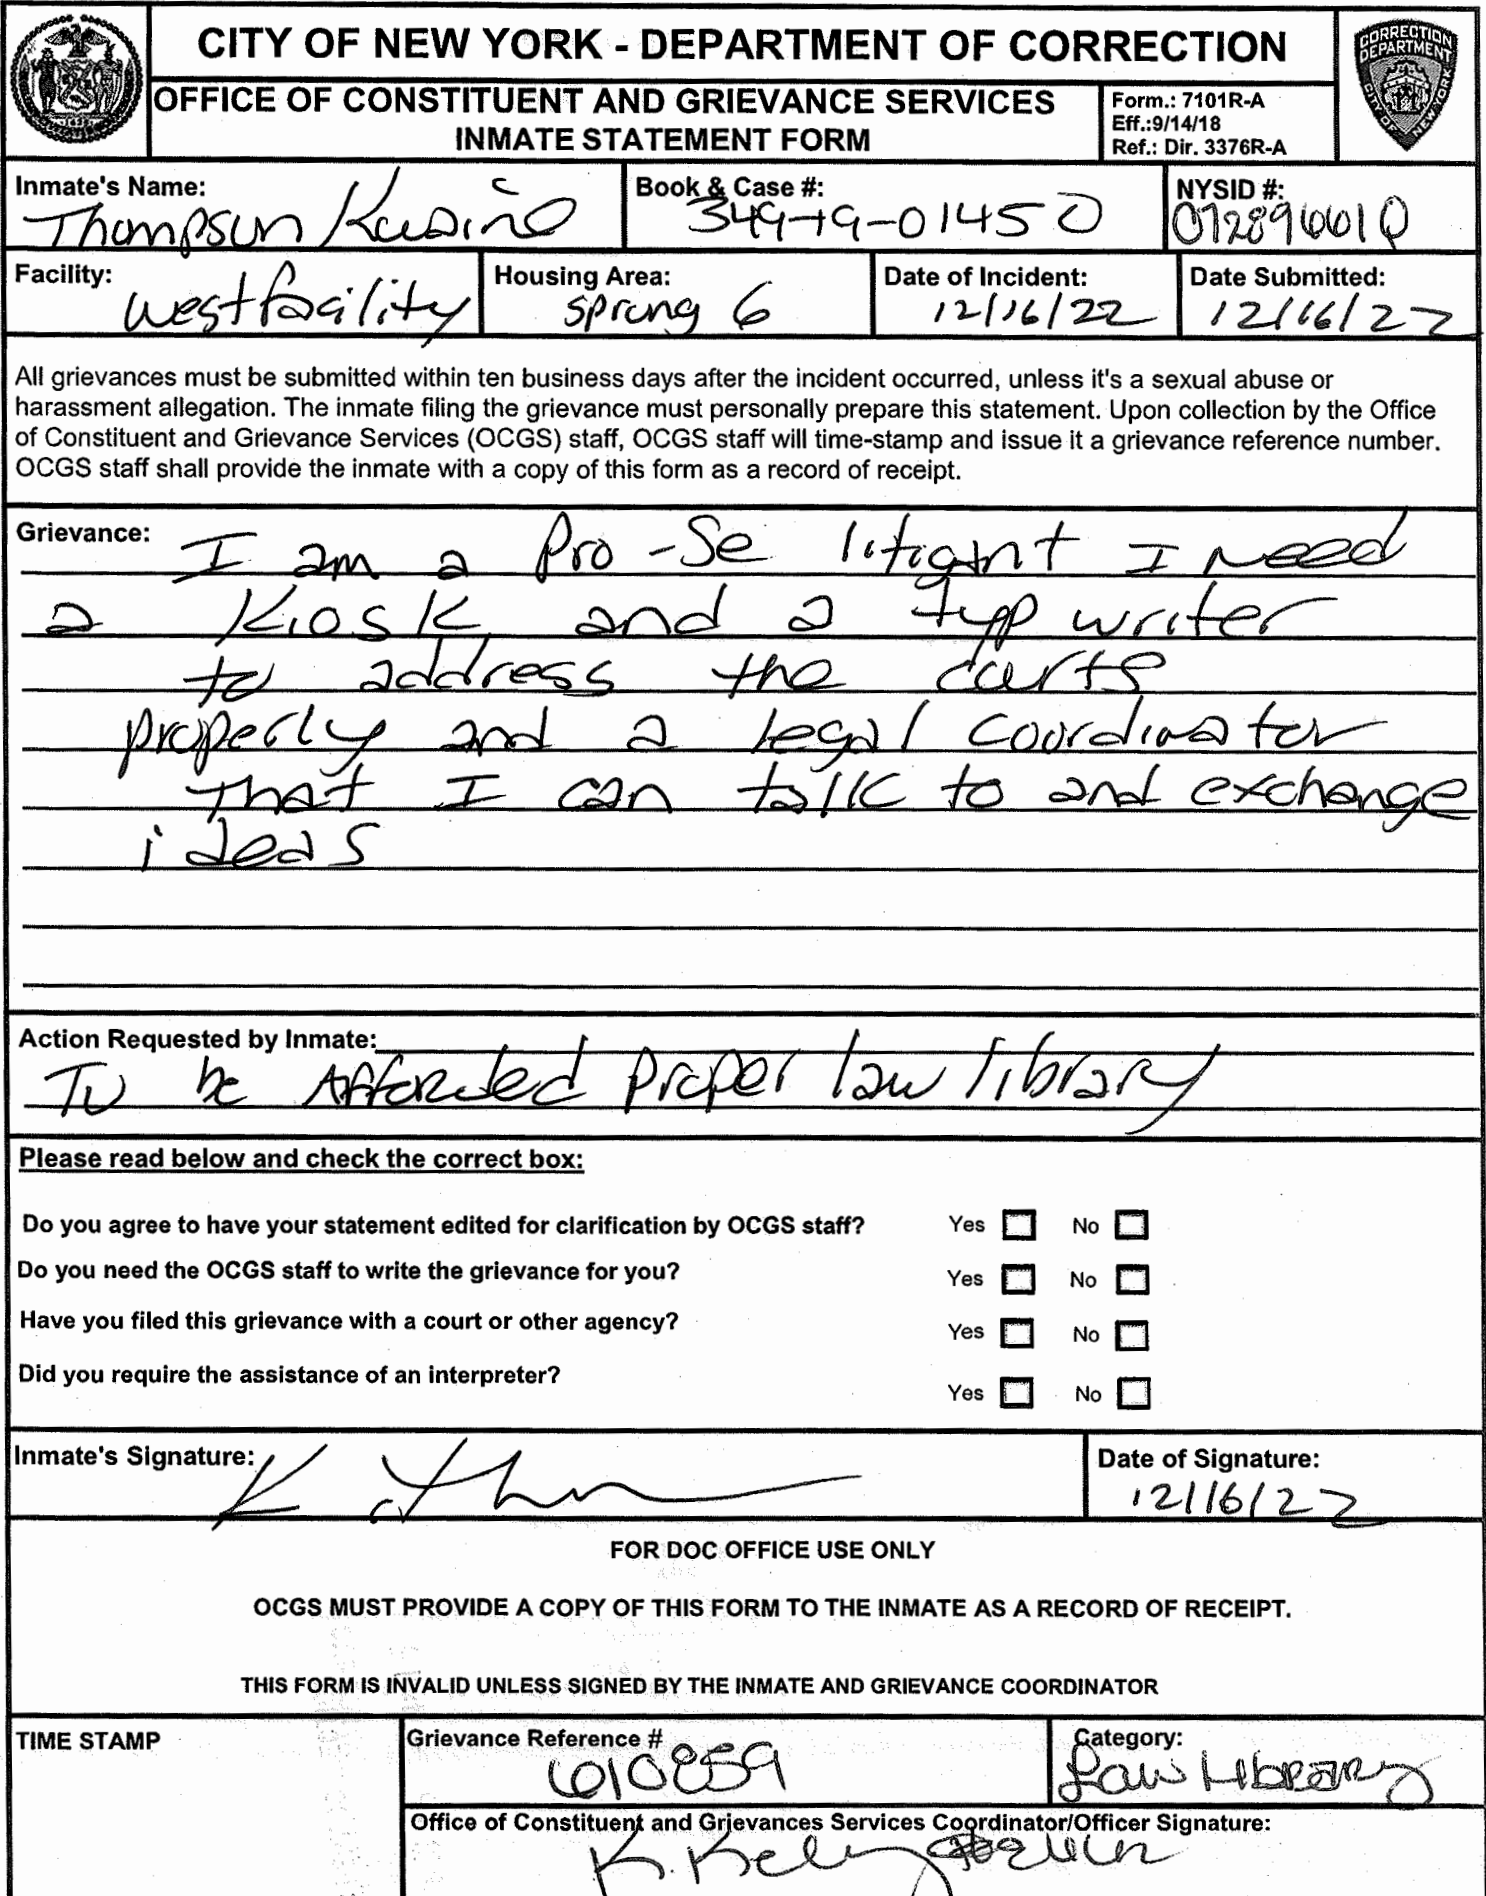 CITY OF NEW YORK - DEPARTMENT OF CORRECTION
OFFICE OF CONSTITUENT AND GRIEVANCE SERVICES
INMATE STATEMENT FORM
Form.: 7101R-A
Eff.:9/14/18
Ref.: Dir. 3376R-A
CORRECTION
DEPARTMENT
CITY OF NEW YORK
Inmate's Name:
Thompson
Book & Case #:
349-19-01450
NYSID #:
07289661Q
Facility:
westfacility
Housing Area:
sprung 6
Date of Incident:
12/16/22
Date Submitted:
12/16/22
All grievances must be submitted within ten business days after the incident occurred, unless it's a sexual abuse or
harassment allegation. The inmate filing the grievance must personally prepare this statement. Upon collection by the Office
of Constituent and Grievance Services (OCGS) staff, OCGS staff will time-stamp and issue it a grievance reference number.
OCGS staff shall provide the inmate with a copy of this form as a record of receipt.
Grievance:
I am a Pro-Se litigant I Need
a Kiosk and a typ writer
to address the courts
properly and a legal coordinator
that I can talk to and exchange
ideas
Action Requested by Inmate:
To be Afforded proper law library
Please read below and check the correct box:
Do you agree to have your statement edited for clarification by OCGS staff? Yes No
Do you need the OCGS staff to write the grievance for you? Yes No
Have you filed this grievance with a court or other agency? Yes No
Did you require the assistance of an interpreter? Yes No
Inmate's Signature:
Date of Signature:
12/16/22
FOR DOC OFFICE USE ONLY
OCGS MUST PROVIDE A COPY OF THIS FORM TO THE INMATE AS A RECORD OF RECEIPT.
THIS FORM IS INVALID UNLESS SIGNED BY THE INMATE AND GRIEVANCE COORDINATOR
TIME STAMP
Grievance Reference #
610859
Category:
Law Library
Office of Constituent and Grievances Services Coordinator/Officer Signature:
K. Kelly